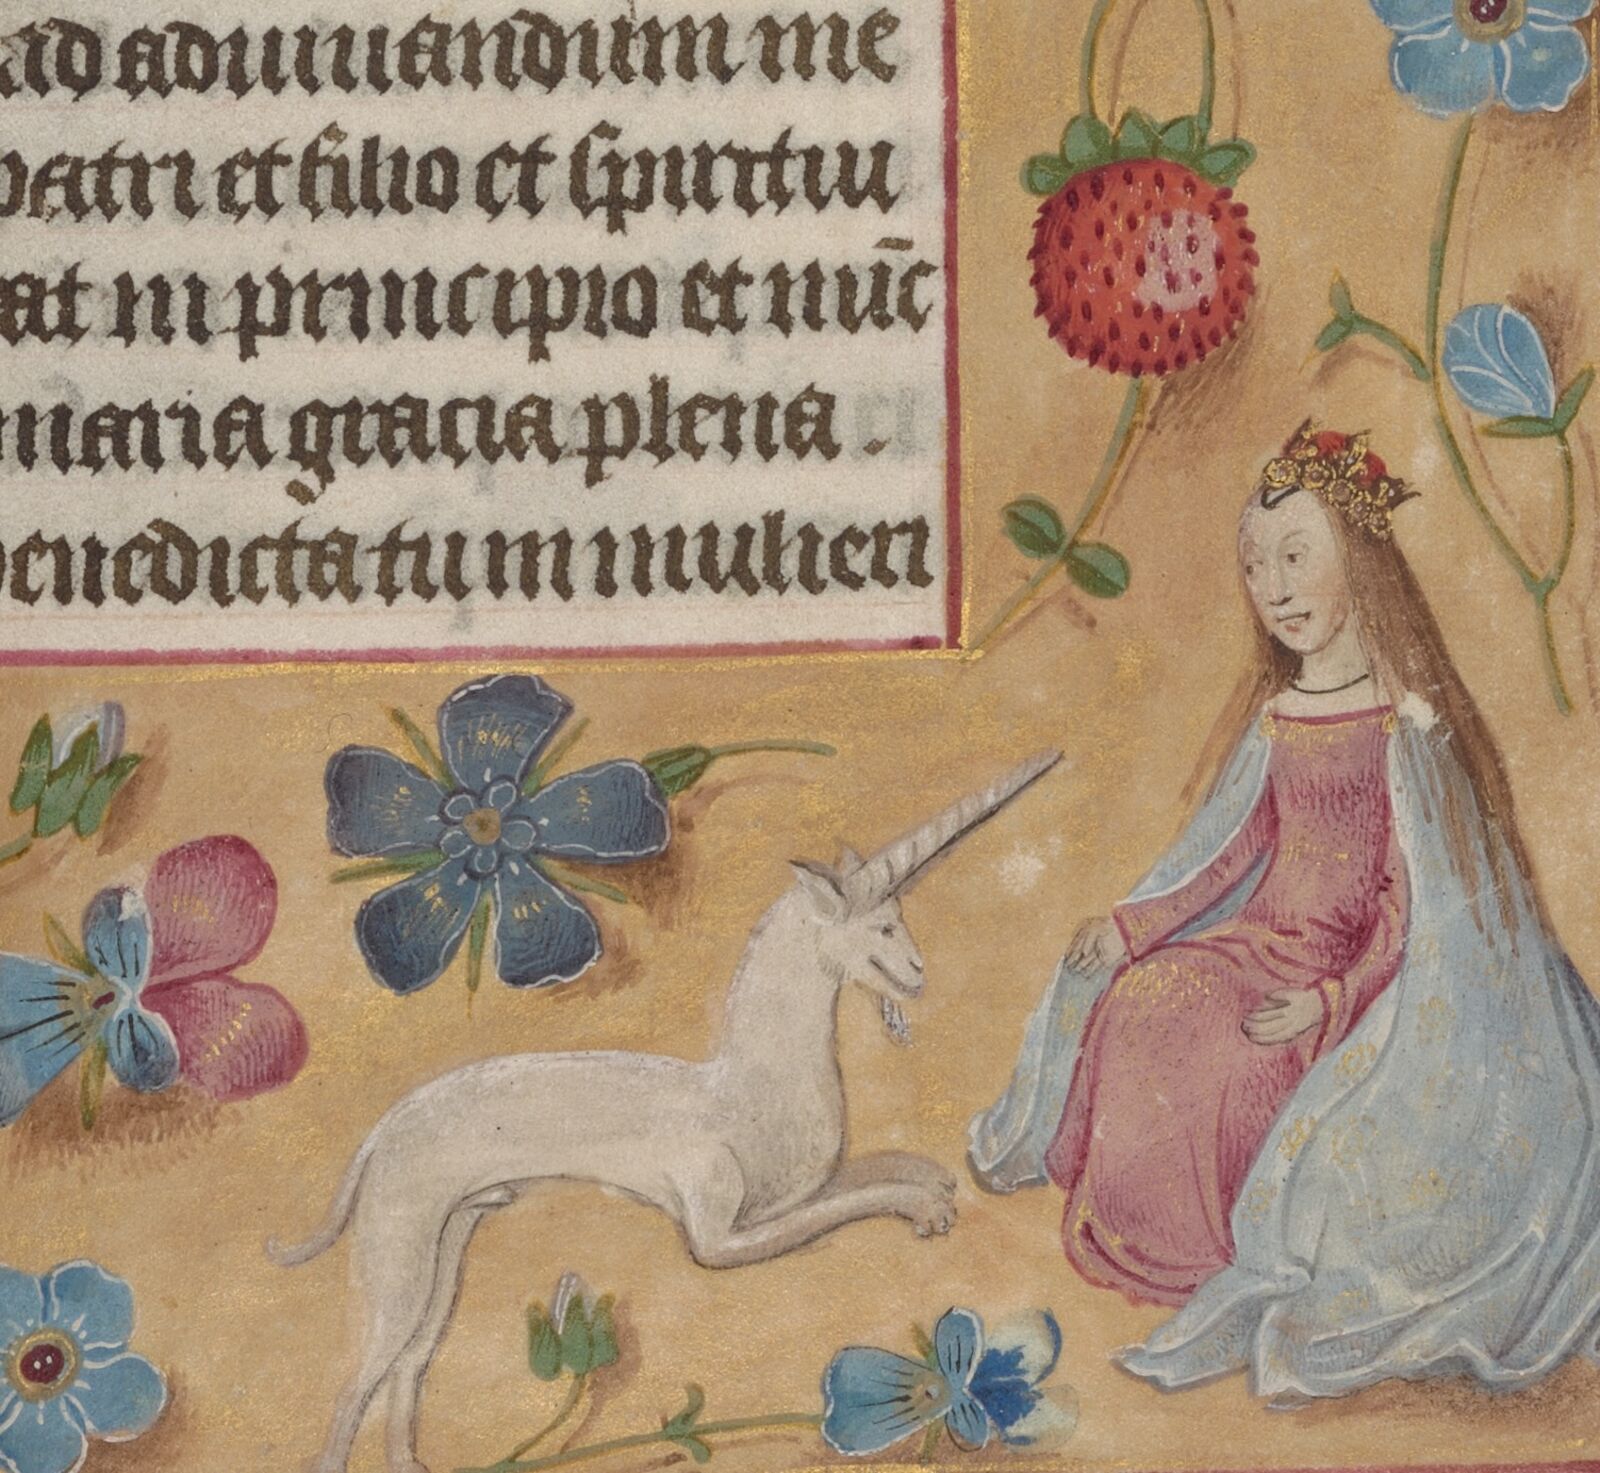 ad adiuuandum me
patri et filio et spiritui
at in principio et nūc
maria gracia plena.
benedicta tu in mulieri